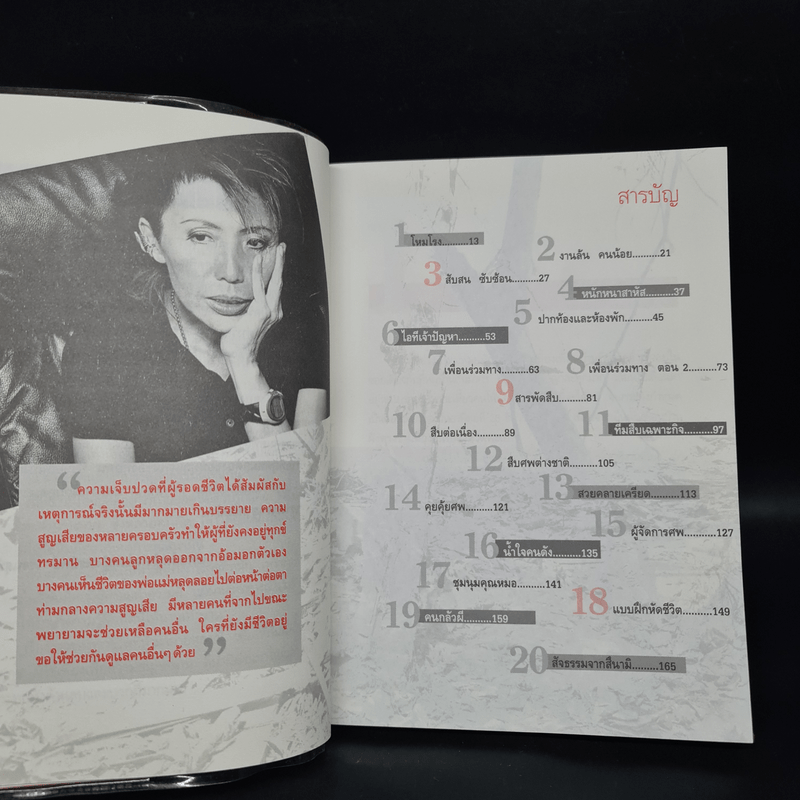 “ความเจ็บปวดที่ผู้รอดชีวิตได้สัมผัสกับ
เหตุการณ์จริงนั้นมีมากมายเกินบรรยาย ความ
สูญเสียของหลายครอบครัวทำให้ผู้ที่ยังคงอยู่ทุกข์
ทรมาน บางคนลูกหลุดออกจากอ้อมอกตัวเอง
บางคนเห็นชีวิตของพ่อแม่หลุดลอยไปต่อหน้าต่อตา
ท่ามกลางความสูญเสีย มีหลายคนที่จากไปขณะ
พยายามจะช่วยเหลือคนอื่น ใครที่ยังมีชีวิตอยู่
ขอให้ช่วยกันดูแลคนอื่นๆ ด้วย”
สารบัญ
1 โหมโรง..........13
2 งานล้น คนน้อย..........21
3 สับสน ซับซ้อน..........27
4 หนักหนาสาหัส..........37
5 ปากท้องและห้องพัก..........45
6 ไอทีเจ้าปัญหา..........53
7 เพื่อนร่วมทาง..........63
8 เพื่อนร่วมทาง ตอน 2..........73
9 สารพัดสืบ..........81
10 สืบต่อเนื่อง..........89
11 ทีมสืบเฉพาะกิจ..........97
12 สืบศพต่างชาติ..........105
13 สวยคลายเครียด..........113
14 คุยคุ้ยศพ..........121
15 ผู้จัดการศพ..........127
16 น้ำใจคนดัง..........135
17 ชุมนุมคุณหมอ..........141
18 แบบฝึกหัดชีวิต..........149
19 คนกลัวผี..........159
20 สัจธรรมจากสึนามิ..........165